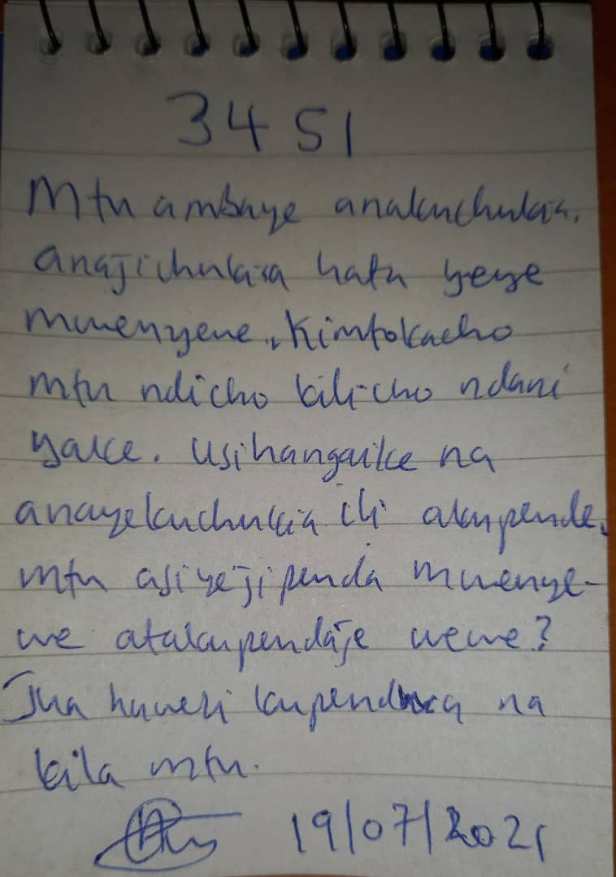 3451
Mtu ambaye anakuchukia,
anajichukia hata yeye
mwenyewe. Kimtokacho
mtu ndicho kilicho ndani
yake. Usihangaike na
anayekuchukia ili akupende,
mtu asiyejipenda mwenye-
we atakupendaje wewe?
Jua huwezi kupendwa na
kila mtu.
19/07/2021